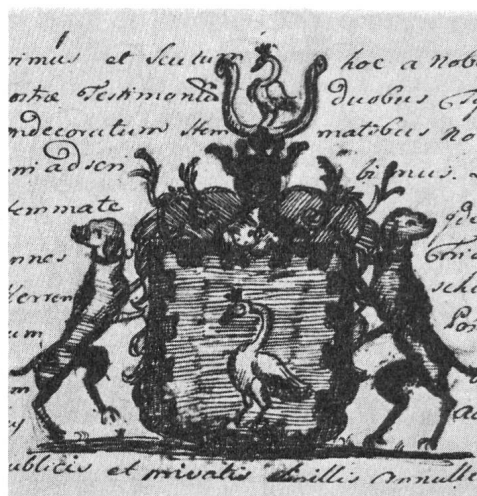 rimus et Scutum hoc a Nob
ostræ Testimonio duobus
ndecoratum Stem matibus No
ni adsen bimus.
temmate qde
nnes
Herren sche
um Por
m
ublicis et privatis annulle